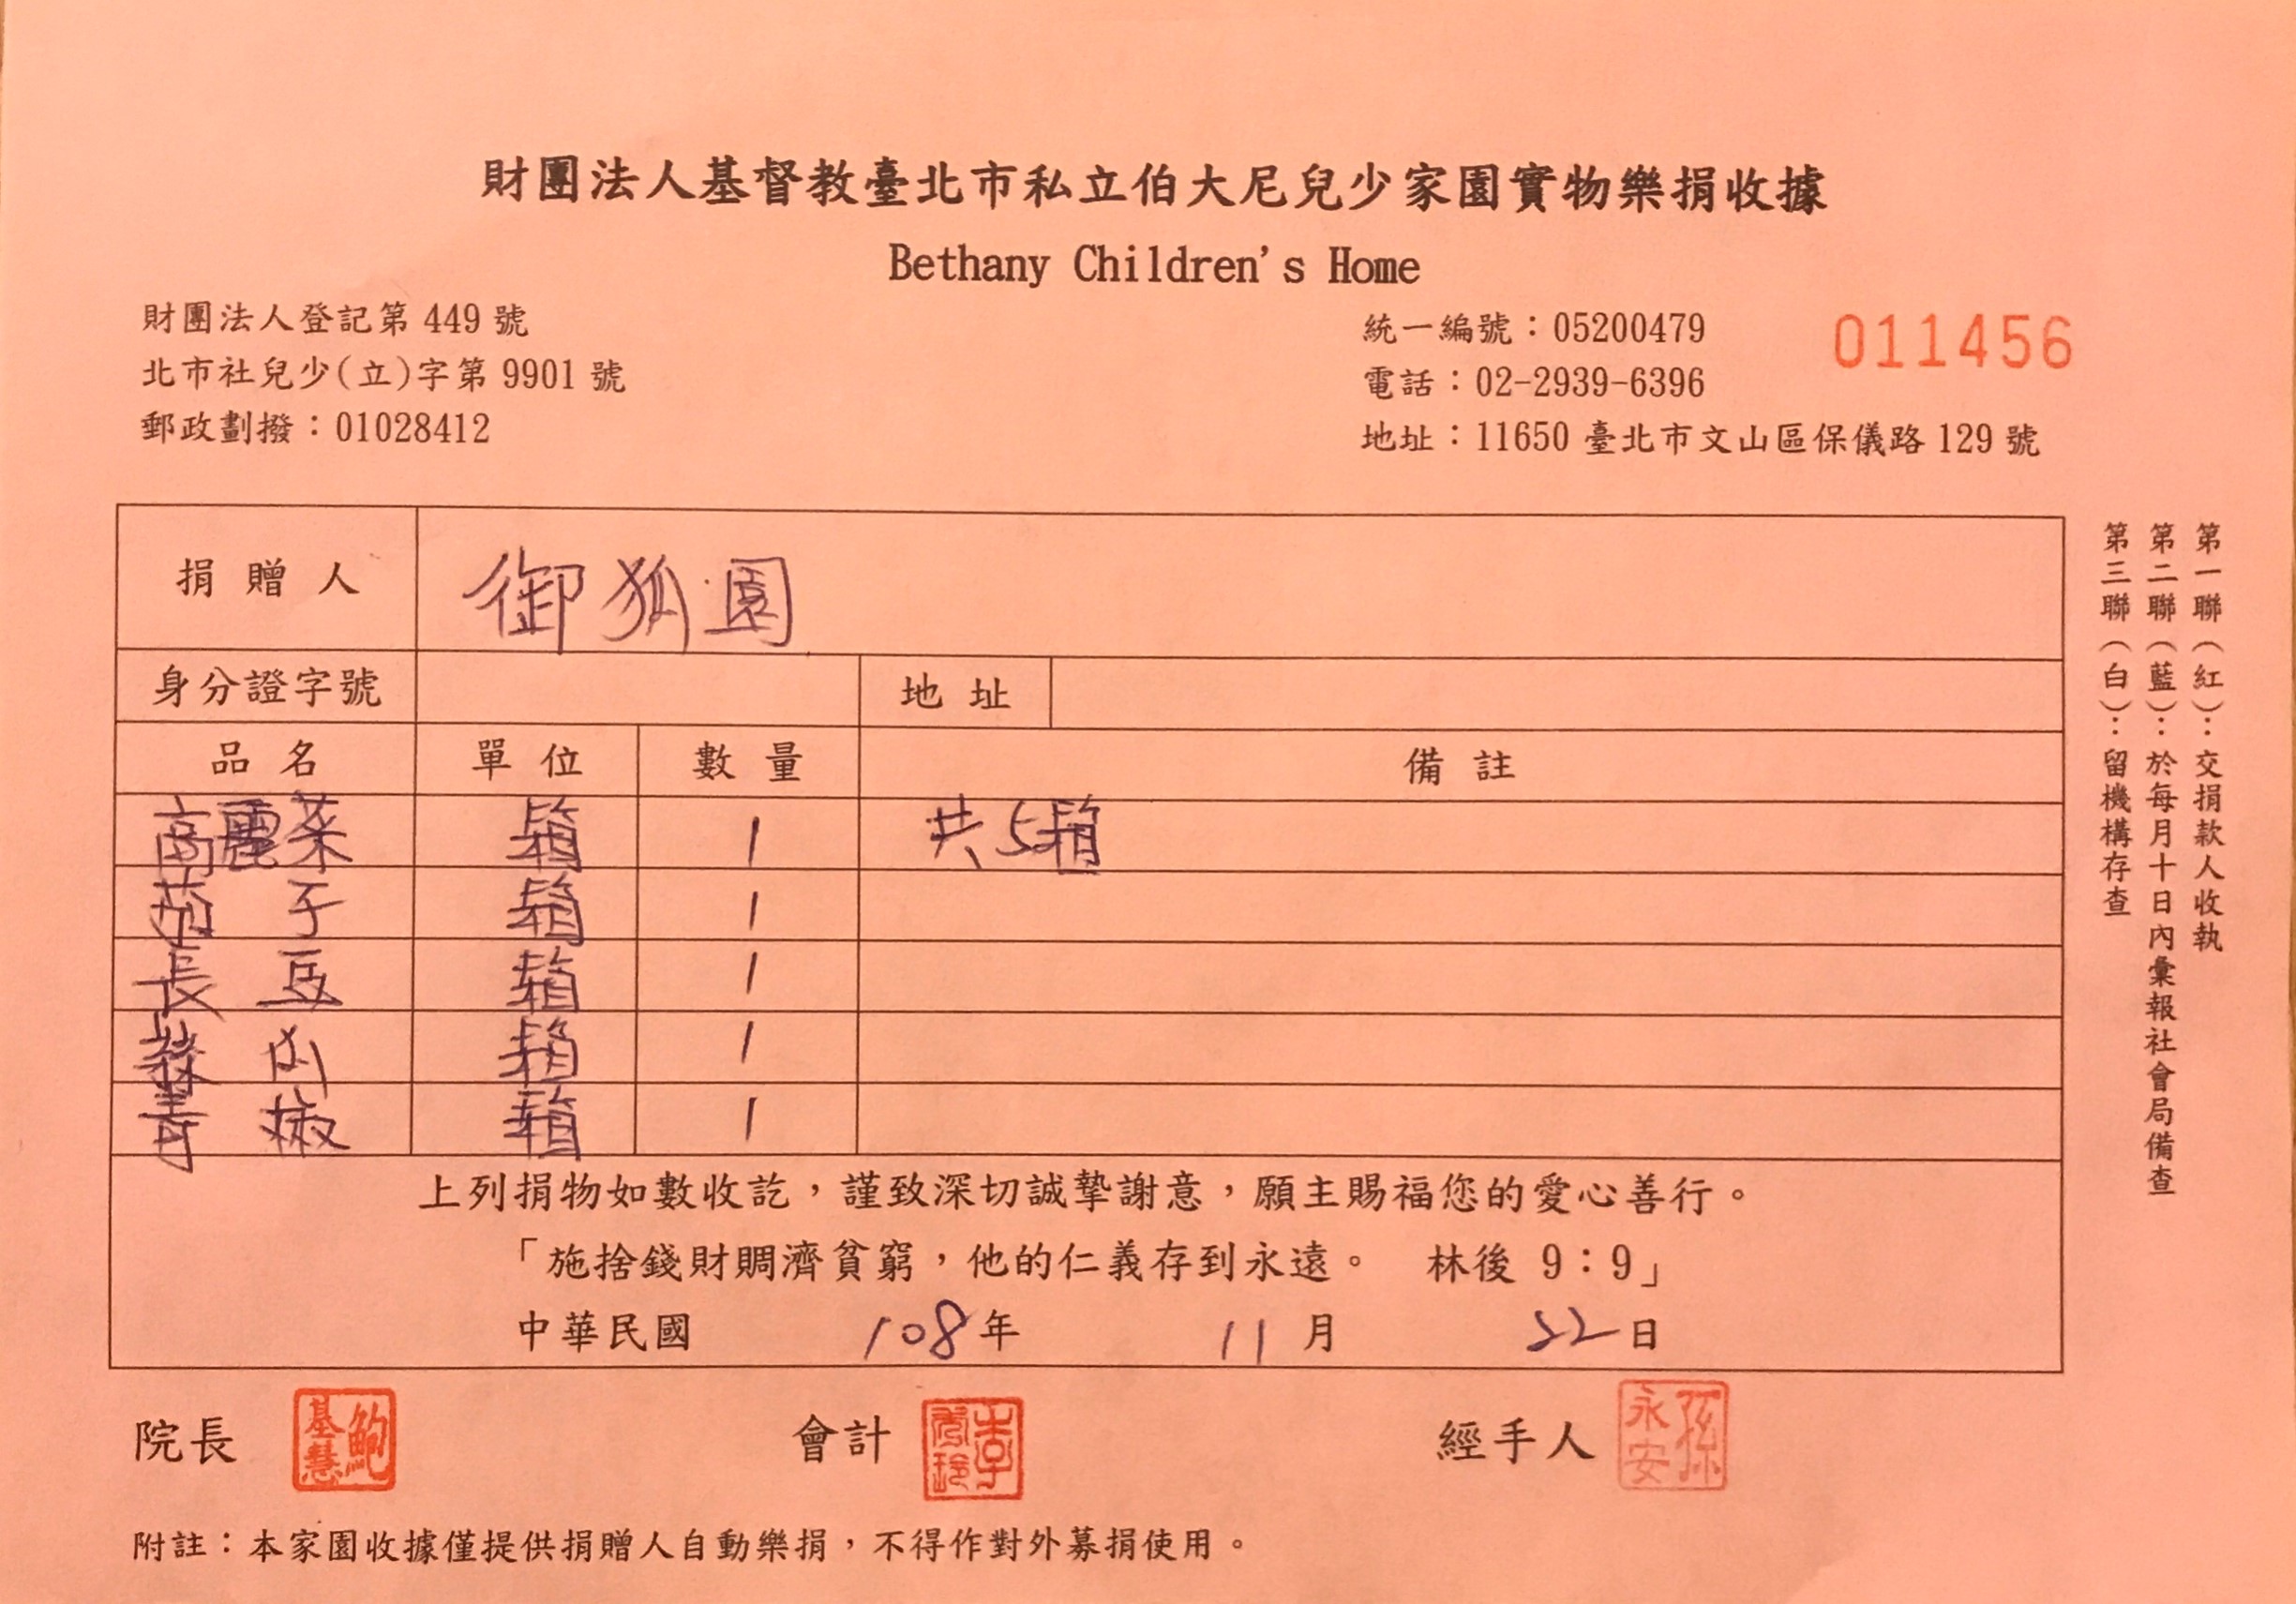 財團法人基督教臺北市私立伯大尼兒少家園實物樂捐收據
Bethany Children's Home
財團法人登記第 449 號
北市社兒少(立)字第 9901 號
郵政劃撥：01028412
統一編號：05200479
電話：02-2939-6396
地址：11650 臺北市文山區保儀路 129 號
011456
捐贈人 御狐園
身分證字號 地址
品名 單位 數量 備註
高麗菜 箱 1 共5箱
茄子 箱 1
長豆 箱 1
箱 1
青椒 箱 1
上列捐物如數收訖，謹致深切誠摯謝意，願主賜福您的愛心善行。
「施捨錢財賙濟貧窮，他的仁義存到永遠。 林後 9：9」
中華民國 108 年 11 月 22 日
院長 鮑基慧 會計 李秀玲 經手人 孫永安
附註：本家園收據僅提供捐贈人自動樂捐，不得作對外募捐使用。
第一聯（紅）：交捐款人收執
第二聯（藍）：於每月十日內彙報社會局備查
第三聯（白）：留機構存查